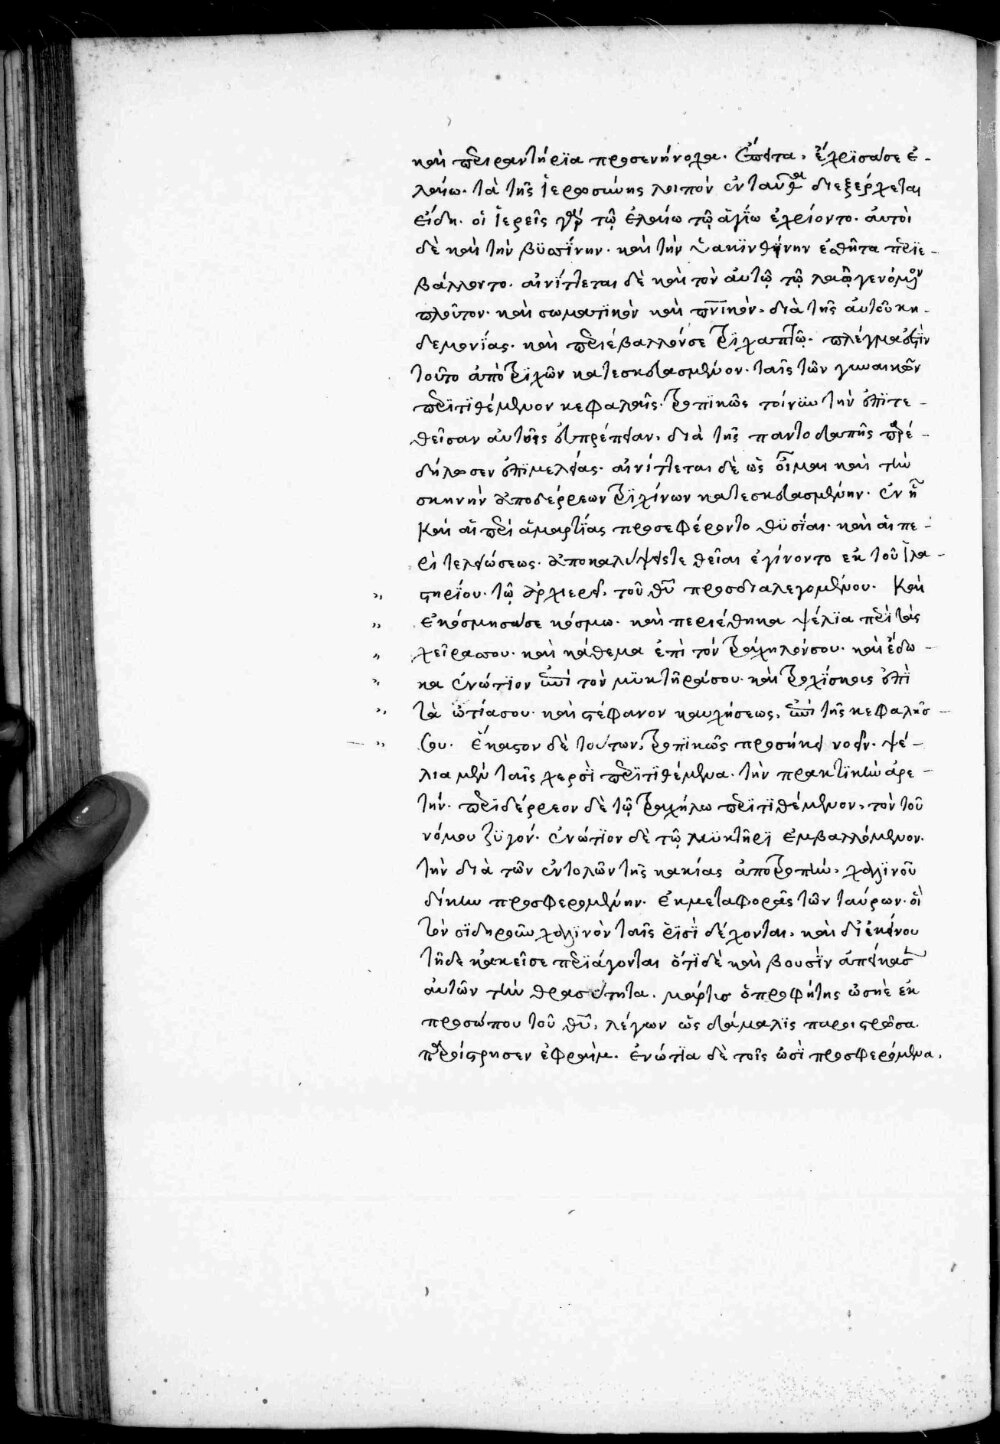 καὶ περιραντήρια προσενήνοχα. Εἶτα, ἔχρισά σε ἐ-
λαίω. τὰ τῆς ἱερωσύνης λοιπὸν ἐνταῦθα διεξέρχεται
εἴδη. οἱ ἱερεῖς γὰρ τῷ ἐλαίω τῷ ἁγίω ἐχρίοντο. αὐτοὶ
δὲ καὶ τὴν βυσσίνην. καὶ τὴν ὑακινθίνην ἐσθῆτα περιε-
βάλλοντο. αἰνίττεται δὲ καὶ τὸν αὐτῷ τῷ λαῷ γενόμενον
πλοῦτον. καὶ σωματικὸν καὶ πνικὸν. διὰ τῆς αὐτοῦ κη-
δεμονίας. καὶ περιέβαλλόν σε τριχάπτω. πλέγμα ἐστὶν
τοῦτο ἀπὸ τριχῶν κατεσκευασμένον. ταῖς τῶν γυναικῶν
περιτιθέμενον κεφαλαῖς. τροπικῶς τοίνυν τὴν ἐπιτε-
θεῖσαν αὐτοῖς εὐπρέπειαν, διὰ τῆς παντοδαπῆς παρε-
δήλωσεν ἐπιμελείας. αἰνίττεται δὲ ὡς οἶμαι καὶ τὴν
σκηνὴν ἀπὸ δέρρεων τριχίνων κατεσκευασμένην. ἐν ᾗ
καὶ αἱ περὶ ἁμαρτίας προσεφέροντο θυσίαι. καὶ αἱ πε-
ρὶ τελειώσεως. ἀποκαλύψεις τε θεῖαι ἐγίνοντο ἐκ τοῦ ἱλα-
στηρίου. τῷ ἀρχιερεῖ, τοῦ θῦ προσδιαλεγομένου. Καὶ
ἐκόσμησά σε κόσμω. καὶ περιέθηκα ψέλια περὶ τὰς
χεῖρας σου. καὶ κάθεμα ἐπὶ τὸν τράχηλόν σου. καὶ ἔδω-
κα ἐνώτιον ἐπὶ τὸν μυκτῆρά σου. καὶ τροχίσκους ἐπὶ
τὰ ὦτιά σου. καὶ στέφανον καυχήσεως, ἐπὶ τῆς κεφαλῆς
σου. Ἕκαστον δὲ τούτων, τροπικῶς προσήκει νοεῖν. ψέ-
λια μὲν ταῖς χερσὶ περιτιθέμενα. τὴν πρακτικὴν ἀρε-
τήν. περιδέρρεον δὲ τῷ τραχήλω περιτιθέμενον, τὸν τοῦ
νόμου ζυγόν. ἐνώτιον δὲ τῷ μυκτῆρι ἐμβαλλόμενον.
τὴν διὰ τῶν ἐντολῶν τῆς κακίας ἀποτροπὴν. χαλινοῦ
δίκην προσφερομένην. ἐκ μεταφορᾶς τῶν ταύρων. οἳ
τὸν σιδηροῦν χαλινὸν ταῖς ῥισὶ δέχονται. καὶ δι' ἐκείνου
τῆδε κἀκεῖσε περιάγονται ὅτι δὲ καὶ βουσὶν ἀπείκασεν
αὐτῶν τὴν θρασύτητα. μάρτυς ὁ προφήτης ὡσηὲ ἐκ
προσώπου τοῦ θῦ, λέγων ὡς δάμαλις παροιστρῶσα.
παροίστρησεν ἐφραΐμ. ἐνώτια δὲ τοῖς ὠσὶ προσφερόμενα.